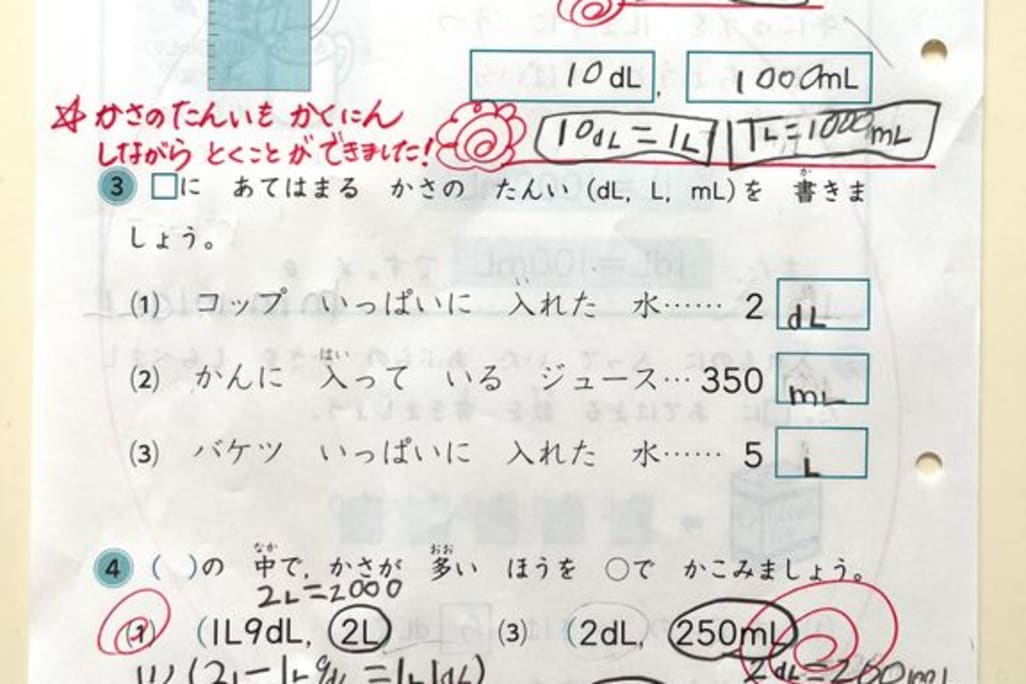 10dL 1000mL
☆かさのたんいも かくにん
しながら とくことが できました!
10dL=1L 1L=1000mL
3 □に あてはまる かさの たんい(dL, L, mL)を 書きま
しょう。
(1) コップ いっぱいに 入れた 水……2 dL
(2) かんに 入って いる ジュース…350 mL
(3) バケツ いっぱいに 入れた 水……5 L
4 ( )の 中で、かさが 多い ほうを ○で かこみましょう。
2L=2000
(1) (1L9dL, 2L) (3) (2dL, 250mL)